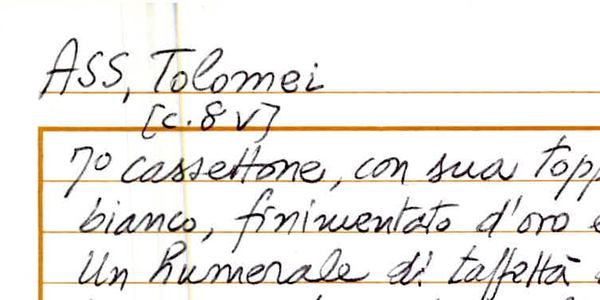 ASS, Tolomei
[c. 8 v]
7º cassettone, con sua topp
bianco, finimentato d'oro e
Un humerale di taffettà